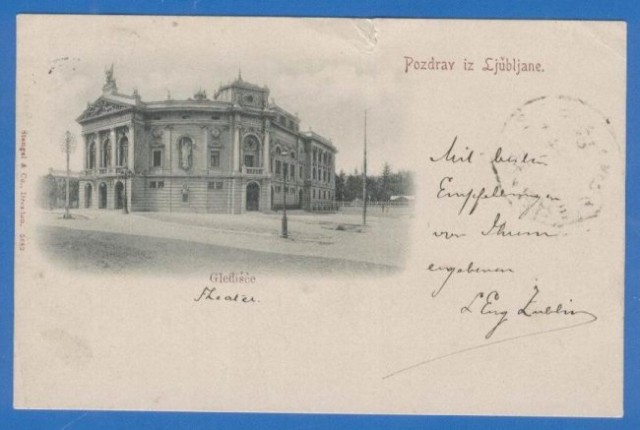 Pozdrav iz Ljubljane.
Stengel & Co., Dresden
Gledišče
Theater.
Mit besten
Empfehlungen
von Ihrem
ergebenen